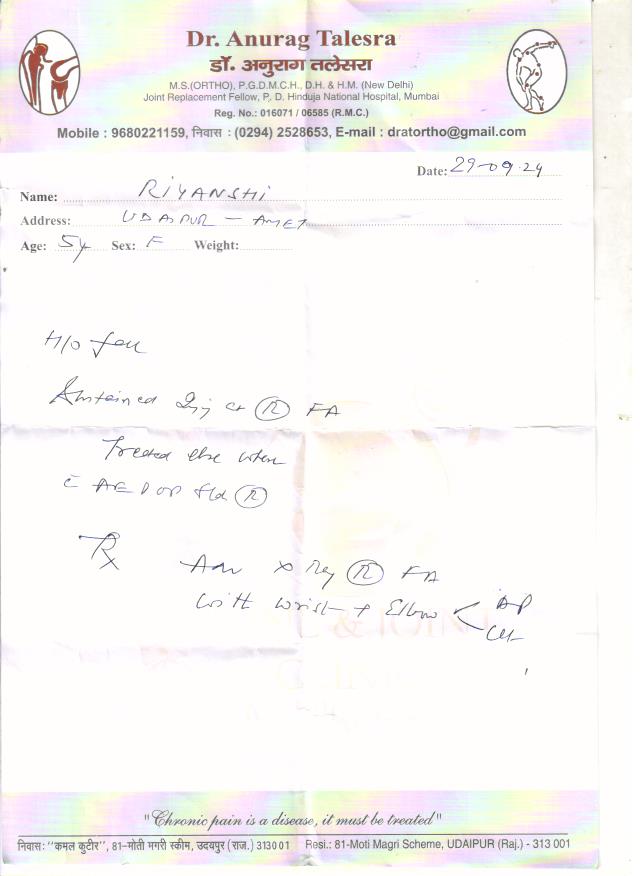 Dr. Anurag Talesra
डॉ. अनुराग तलेसरा
M.S.(ORTHO), P.G.D.M.C.H., D.H. & H.M. (New Delhi)
Joint Replacement Fellow, P. D. Hinduja National Hospital, Mumbai
Reg. No.: 016071 / 06585 (R.M.C.)
Mobile : 9680221159, निवास : (0294) 2528653, E-mail : dratortho@gmail.com
Date: 29-09-24
Name: RIYANSHI
Address: UDAIPUR - AMET
Age: 5y Sex: F Weight:
H/O fall
Sustained Inj at (R) FA
Treated else where
c̄ AE POP (R)
Rx
Adv X Ray (R) FA
with wrist + Elbow < AP
& JOINT
CLINIC
"Chronic pain is a disease, it must be treated"
निवास: "कमल कुटीर", 81-मोती मगरी स्कीम, उदयपुर (राज.) 313001 Resi.: 81-Moti Magri Scheme, UDAIPUR (Raj.) - 313 001